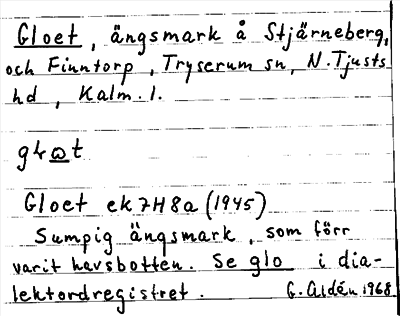 Gloet, ängsmark å Stjärneberg,
och Finntorp, Tryserum sn, N. Tjusts
hd, Kalm. l.
Gloet ek 7H8a (1945)
Sumpig ängsmark, som förr
varit havsbotten. Se glo i dia-
lektordregistret. G. Aldén 1968